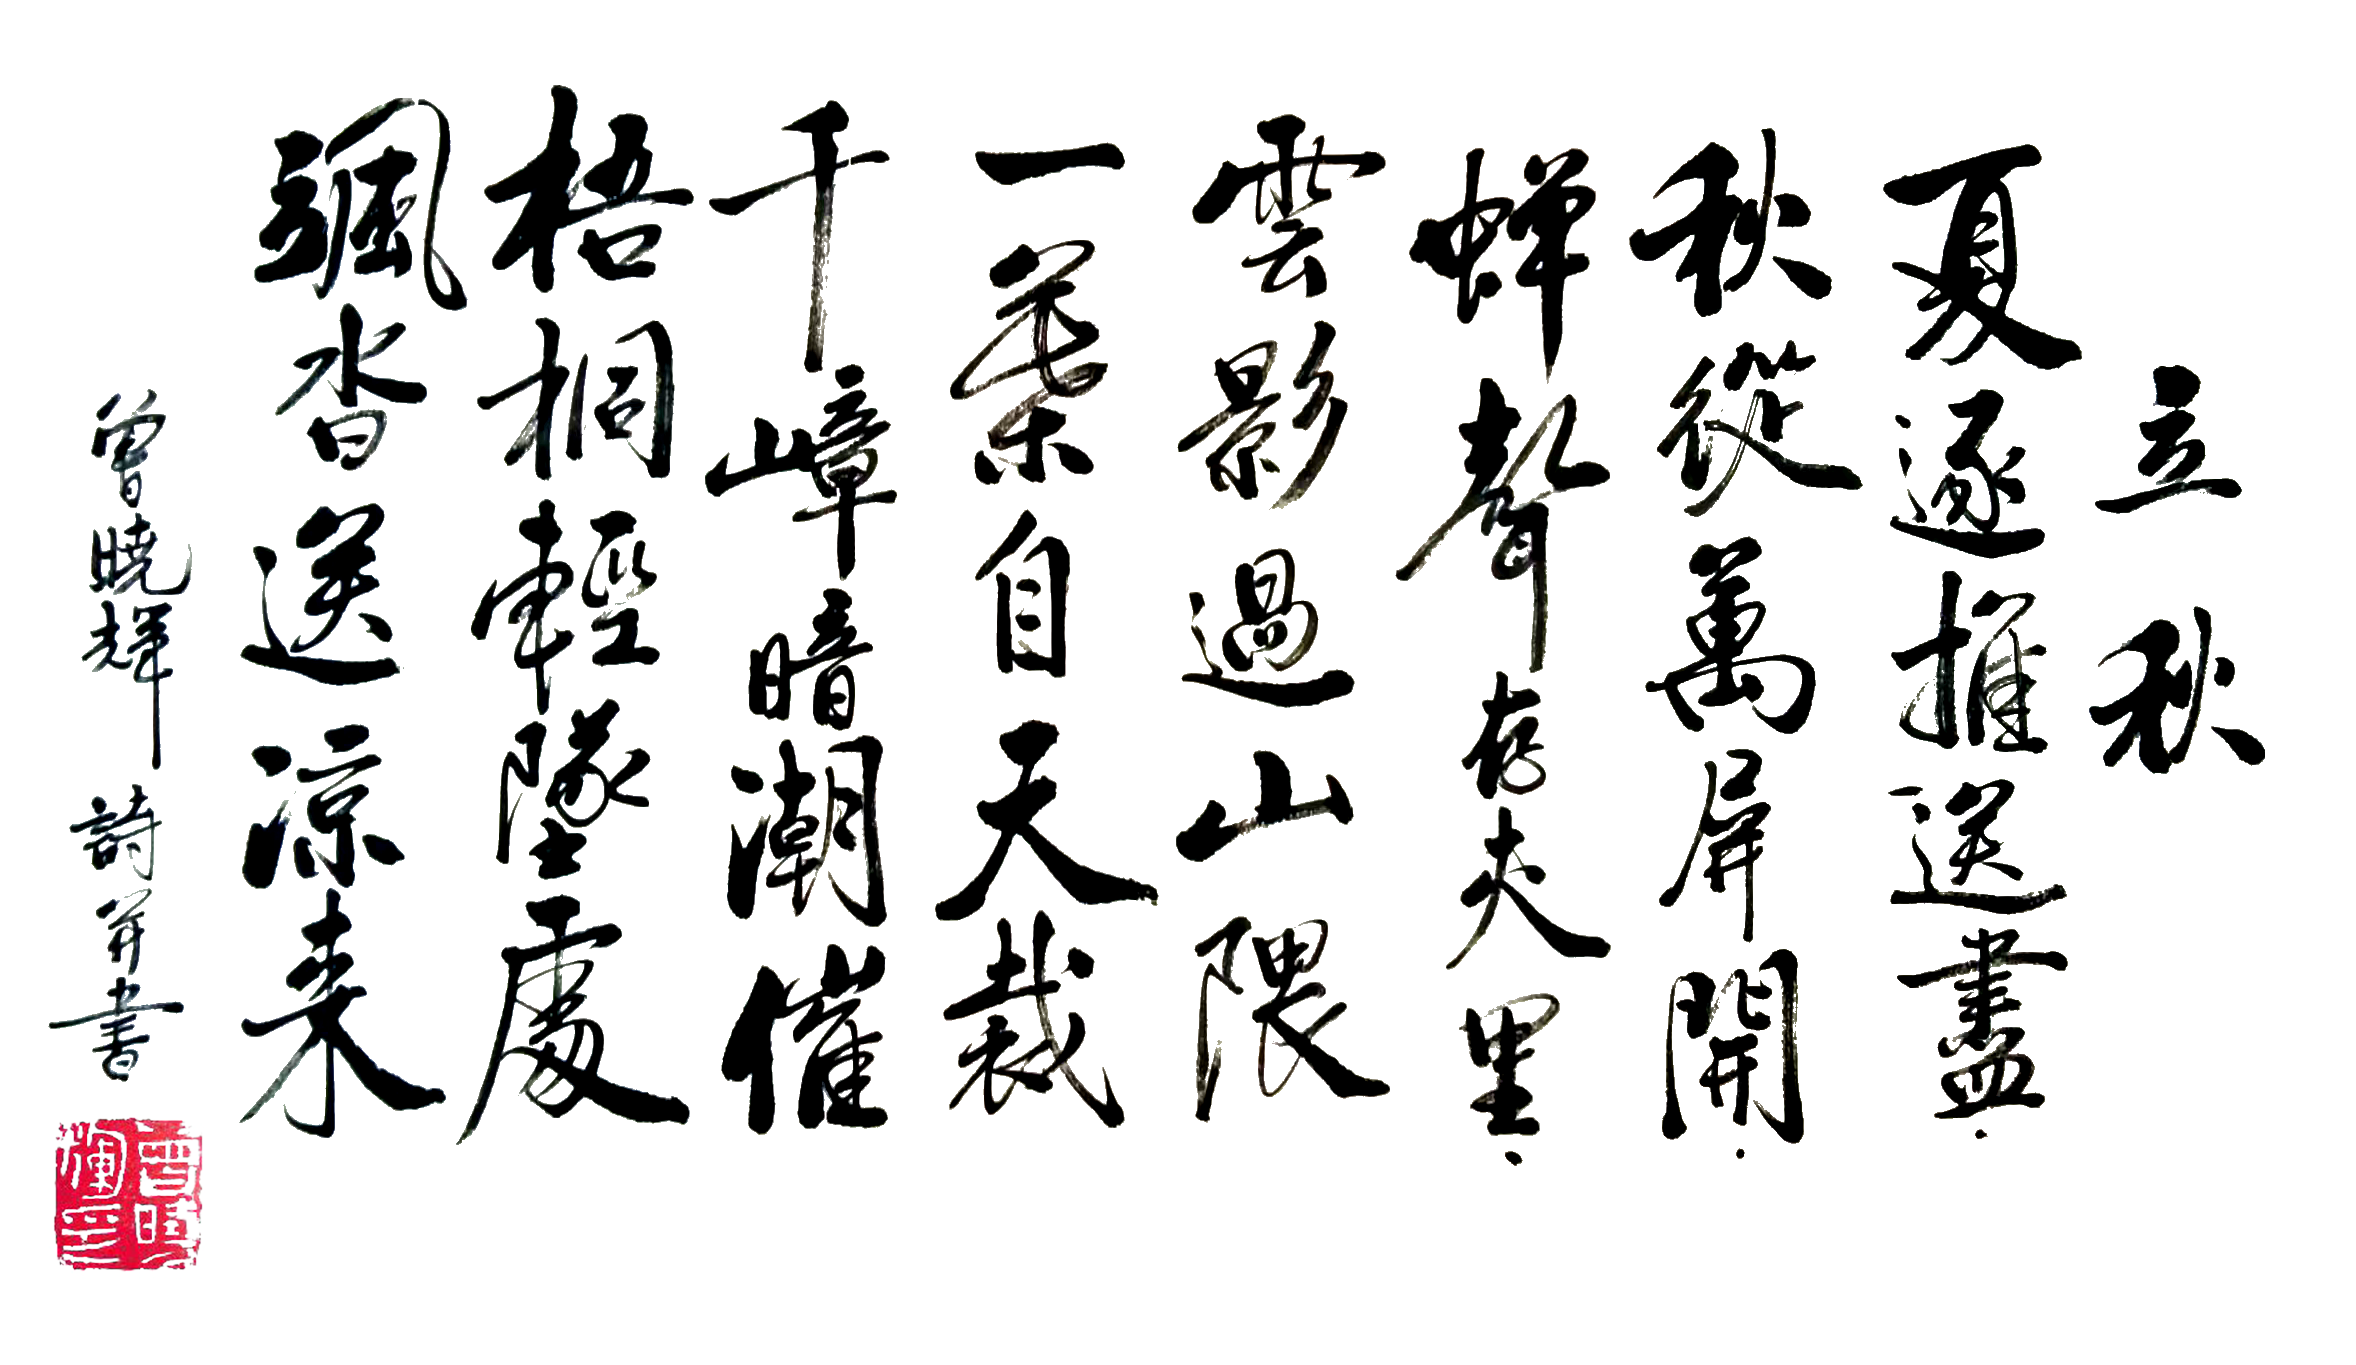 立秋
夏逐推送盡
秋從萬屏開
蟬聲存夫里
雲影過山隈
一葉自天裁
千嶂暗潮催
梧桐輕墜處
颯沓送凉来
曾曉輝 詩并書
曾曉輝印